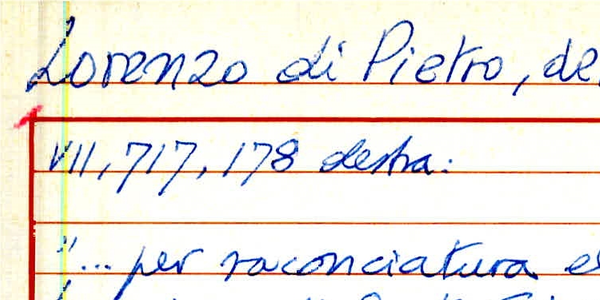 Lorenzo di Pietro, de
VII, 717, 178 destra:
"... per raconciatura e